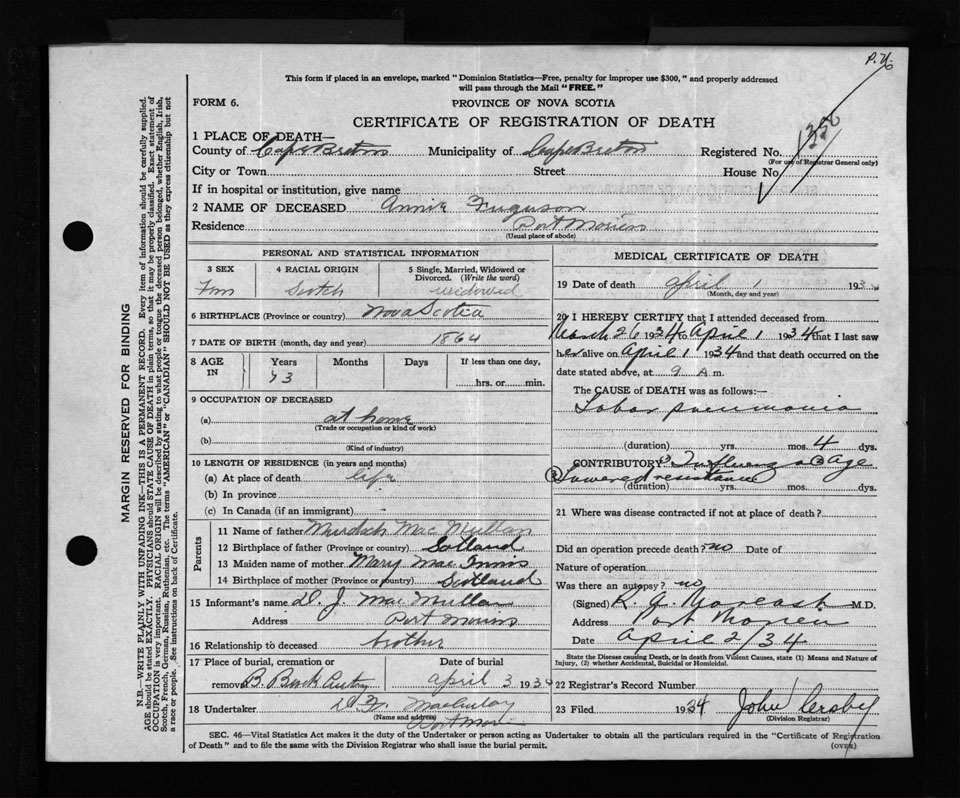 P.M.
This form if placed in an envelope, marked "Dominion Statistics—Free, penalty for improper use $300," and properly addressed
will pass through the Mail "FREE."
FORM 6.
PROVINCE OF NOVA SCOTIA
CERTIFICATE OF REGISTRATION OF DEATH
1 PLACE OF DEATH—
County of Cape Breton Municipality of Cape Breton Registered No.
(For use of Registrar General only)
City or Town Street House No.
If in hospital or institution, give name
2 NAME OF DECEASED Annie Ferguson
Residence Port Morien
(Usual place of abode)
PERSONAL AND STATISTICAL INFORMATION
3 SEX 4 RACIAL ORIGIN 5 Single, Married, Widowed or Divorced. (Write the word)
Fem Scotch widowed
6 BIRTHPLACE (Province or country) Nova Scotia
7 DATE OF BIRTH (month, day and year) 1864
8 AGE IN Years Months Days If less than one day,
73 hrs. or min.
9 OCCUPATION OF DECEASED
(a) at home
(Trade or occupation or kind of work)
(b)
(Kind of industry)
10 LENGTH OF RESIDENCE (in years and months)
(a) At place of death life
(b) In province
(c) In Canada (if an immigrant)
Parents
11 Name of father Murdoch Mac Mullan
12 Birthplace of father (Province or country) Scotland
13 Maiden name of mother Mary Mac Innis
14 Birthplace of mother (Province or country) Scotland
15 Informant's name D. J. Mac Mullan
Address Port Morien
16 Relationship to deceased brother
17 Place of burial, cremation or Date of burial
removal B. Back April 3 193
18 Undertaker
(Name and address)
Port Morien
MEDICAL CERTIFICATE OF DEATH
19 Date of death April 1 193
(Month, day and year)
20 I HEREBY CERTIFY that I attended deceased from
March 26 1934 to April 1 1934 that I last saw
her alive on April 1 1934 and that death occurred on the
date stated above, at 9 A.m.
The CAUSE of DEATH was as follows:—
Lobar pneumonia
(duration) yrs. mos. 4 dys.
CONTRIBUTORY (1) Influenza (2) Age
(3) Lowered resistance
(duration) yrs. mos. dys.
21 Where was disease contracted if not at place of death?
Did an operation precede death? no Date of
Nature of operation
Was there an autopsy? no
(Signed) M.D.
Address Port Morien
Date April 2/34
State the Disease causing Death, or in death from Violent Causes, state (1) Means and Nature of
Injury, (2) whether Accidental, Suicidal or Homicidal.
22 Registrar's Record Number
23 Filed 1934 John
(Division Registrar)
SEC. 46—Vital Statistics Act makes it the duty of the Undertaker or person acting as Undertaker to obtain all the particulars required in the "Certificate of Registration
of Death" and to file the same with the Division Registrar who shall issue the burial permit. (OVER)
MARGIN RESERVED FOR BINDING
N.B.—WRITE PLAINLY WITH UNFADING INK—THIS IS A PERMANENT RECORD. Every item of information should be carefully supplied.
AGE should be stated EXACTLY. PHYSICIANS should STATE CAUSE OF DEATH in plain terms, so that it may be properly classified. Exact statement of
OCCUPATION is very important. RACIAL ORIGIN will be described by stating to what people or tongue the deceased person belonged, whether English, Irish,
Scotch, French, German, Russian, Ruthenian, etc. The terms "AMERICAN" or "CANADIAN" SHOULD NOT BE USED as they express citizenship but not
a race or people. See instructions on back of Certificate.